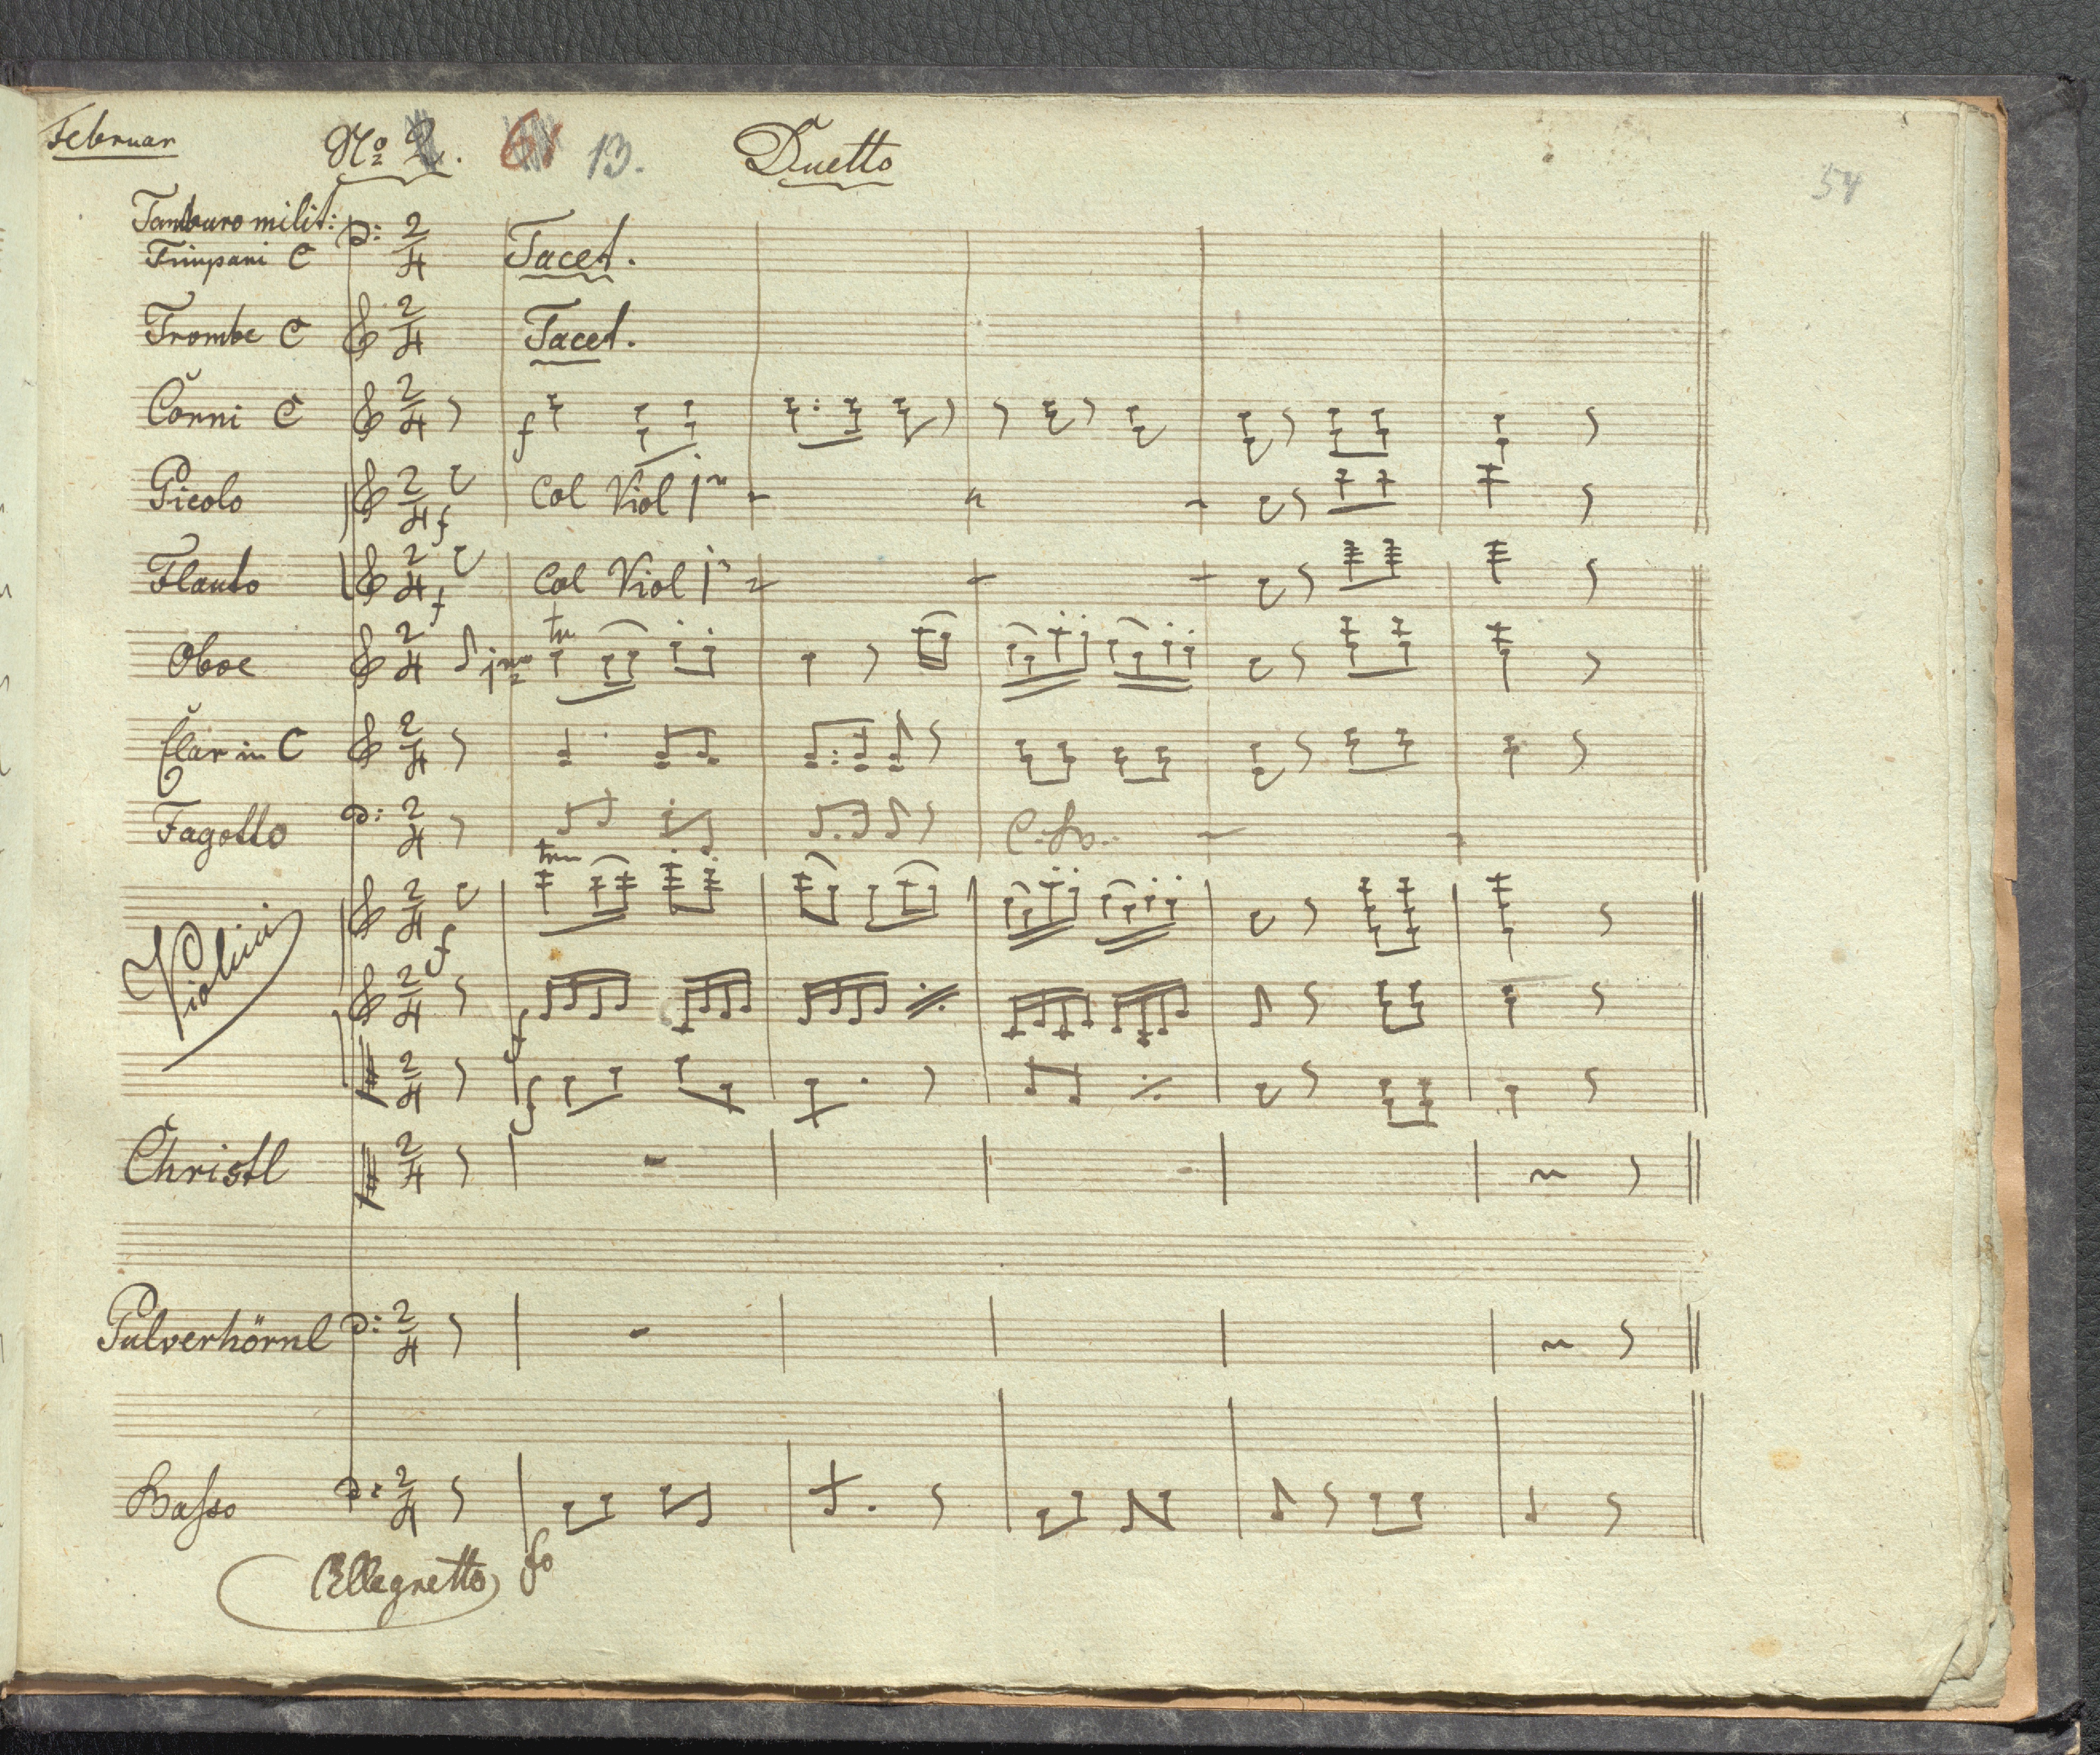 Februar
No 2. 61 13. Duetto
54
Tamburo milit:
Timpani C Tacet.
Trombe C Tacet.
Corni C f
Picolo f Col Viol 1o
Flauto f Col Viol 1o
Oboe 1mo tr
Clar in C
Fagotto C. B.
Violini f trm
f
f
Christl
Pulverhörnl
Basso
Allegretto fo